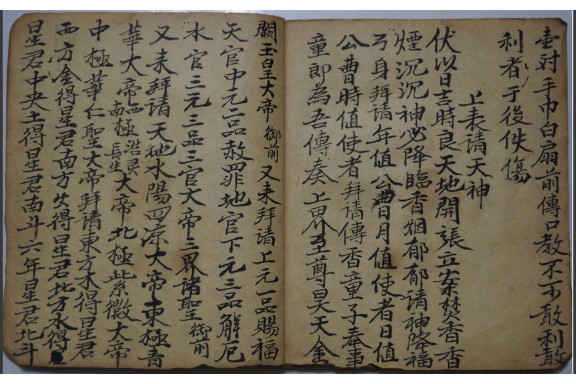 壶对手巾白扇前傳口教不可敢利敢
利者于後佚傷
上表請天神
伏以日吉時良天地開張立案焚香香
煙沉沉神必降臨香烟郁郁請神降福
弓身拜請年值公曹月值使者日值
公曹時值使者拜請傳香童子奉事
童郎為吾傳奏上界至尊昊天金
闕玉皇大帝御前又未拜請上元一品賜福
天官中元一品赦罪地官下元三品解厄
水官三元三品三官大帝三界諸聖御前
又未拜請天地水陽四凉大帝東極青
華大帝南無極浩灵長生大帝北極紫微大帝
中極華仁聖大帝拜請東方木得星君
西方金得星君南方火得星君北方水得
星君中央土得星君南斗六年星君北斗